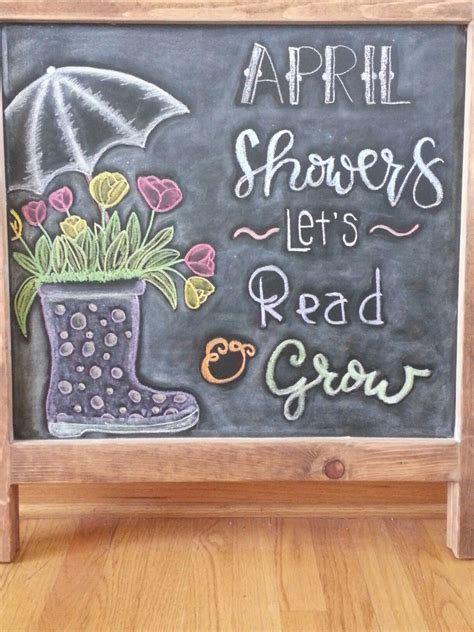 APRIL
Showers
~ LET'S ~
Read
& Grow